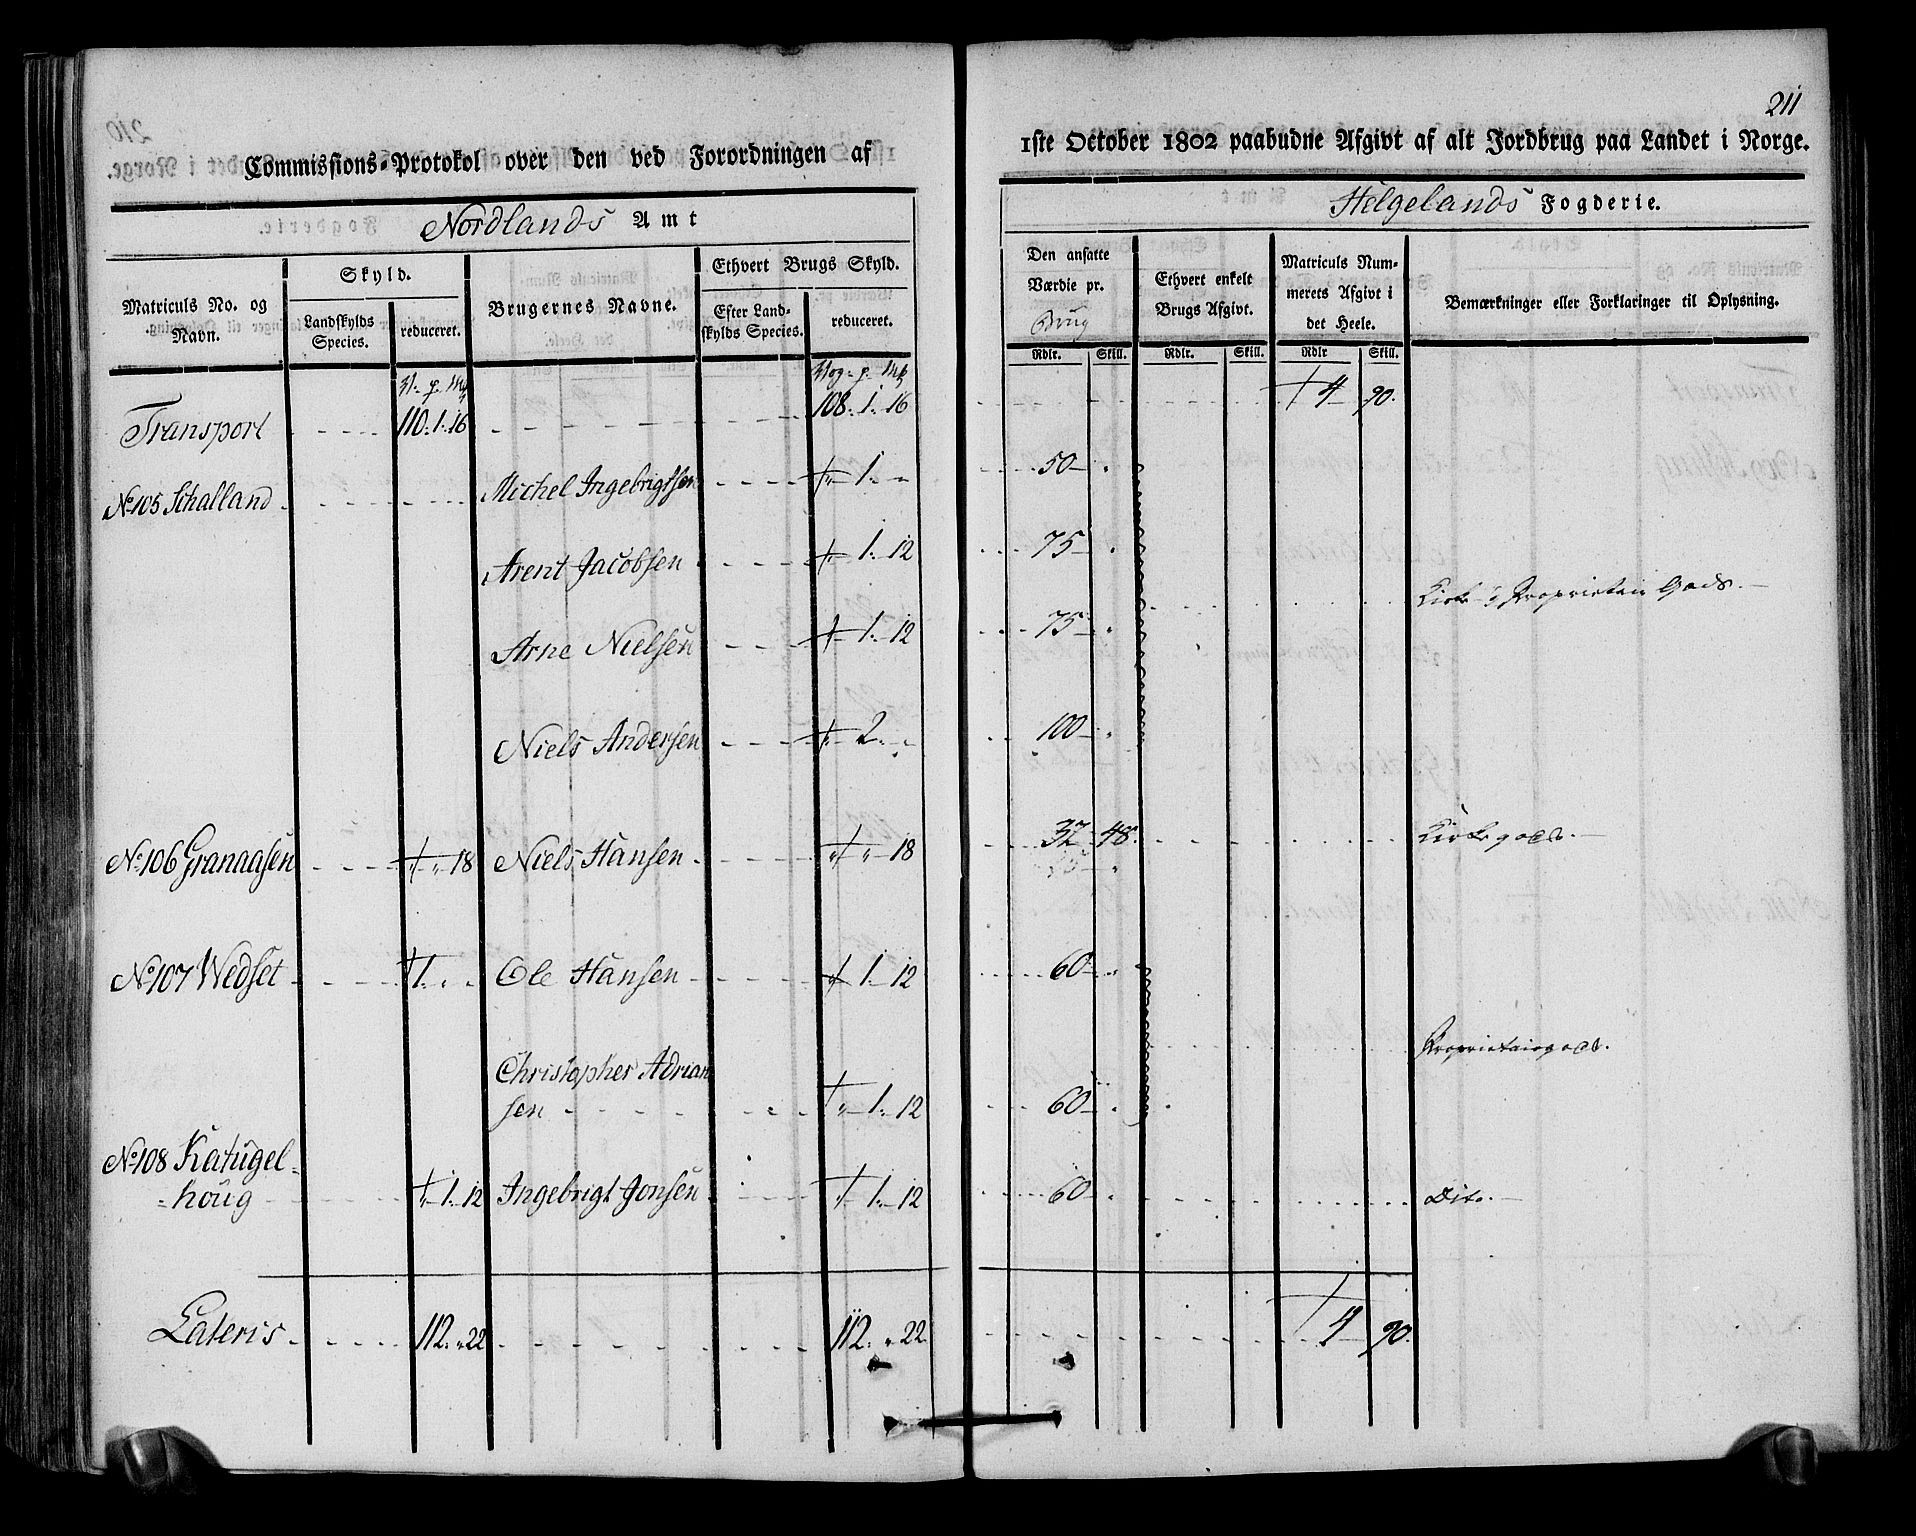 211
Commissions-Protokol over den ved Forordningen af 1ste October 1802 paabudne Afgivt af alt Jordbrug paa Landet i Norge.
Nordlands Amt
Helgelands Fogderie.
Matriculs No. og Navn.
Skyld.
Landskylds Species.
reduceret.
Brugernes Navne.
Ethvert Brugs Skyld.
Efter Landskylds Species.
reduceret.
Den ansatte Værdie pr. Brug
Rdlr. Skill.
Ethvert enkelt Brugs Afgivt.
Rdlr. Skill.
Matriculs Nummerets Afgivt i det Heele.
Rdlr Skill.
Bemærkninger eller Forklaringer til Oplysning.
Transport 110. 1. 16 108. 1. 16 4 90.
No 105 Schalland Michel Ingebrigtsen 1. 50
Arent Jacobsen 1. 12 75
Kirke- & Proprietair Gods.
Arne Nielsen 1. 12 75
Niels Andersen 2. 100
No 106 Granaasen 18 Niels Hansen 18 32 48. Kirkegods.
No 107 Wedset 1. Ole Hansen 1. 12 60
Proprietairgods.
Christopher Adrian
sen 1. 12 60
No 108 Katugel=
=houg 1. 12 Ingebrigt Jonsen 1. 12 60 Dito.
Lateris 112. 22 112. 22. 4 90.